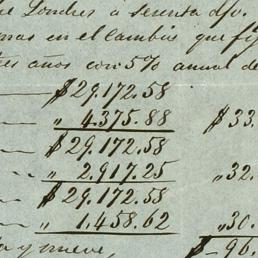 de Londres á sesenta d/v.
mas en el cambio que fij
tres años con 5% anual de
$ 29.172.58
„ 4.375.88 $ 33.
$ 29.172.58
„ 2.917.25 „ 32.
$ 29.172.58
„ 1.458.62 „ 30.
ta y nueve, $ 96.